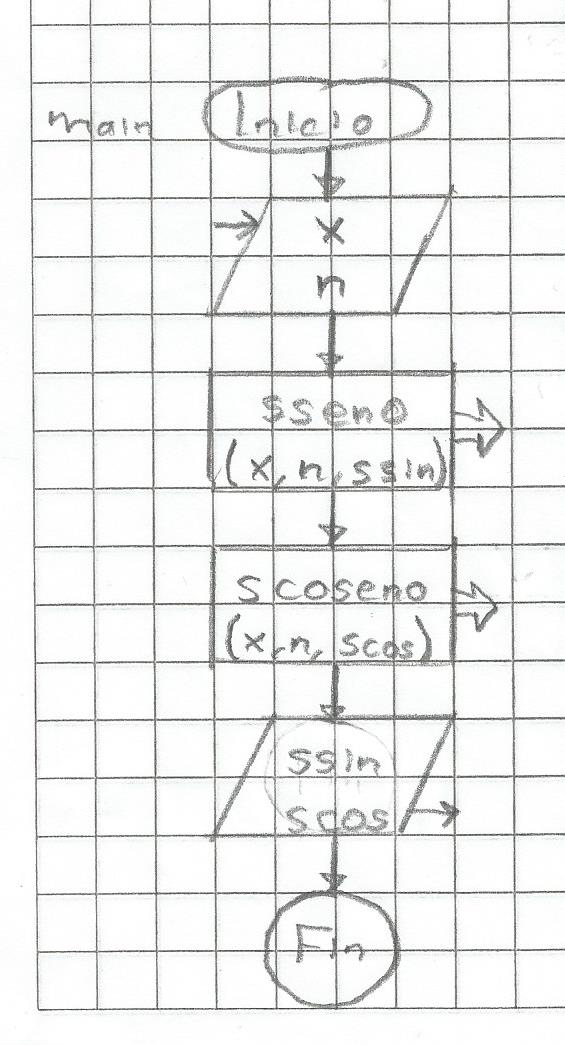 main Inicio
x
n
sseno
(x,n,ssin)
scoseno
(x,n,scos)
ssin
scos
Fin